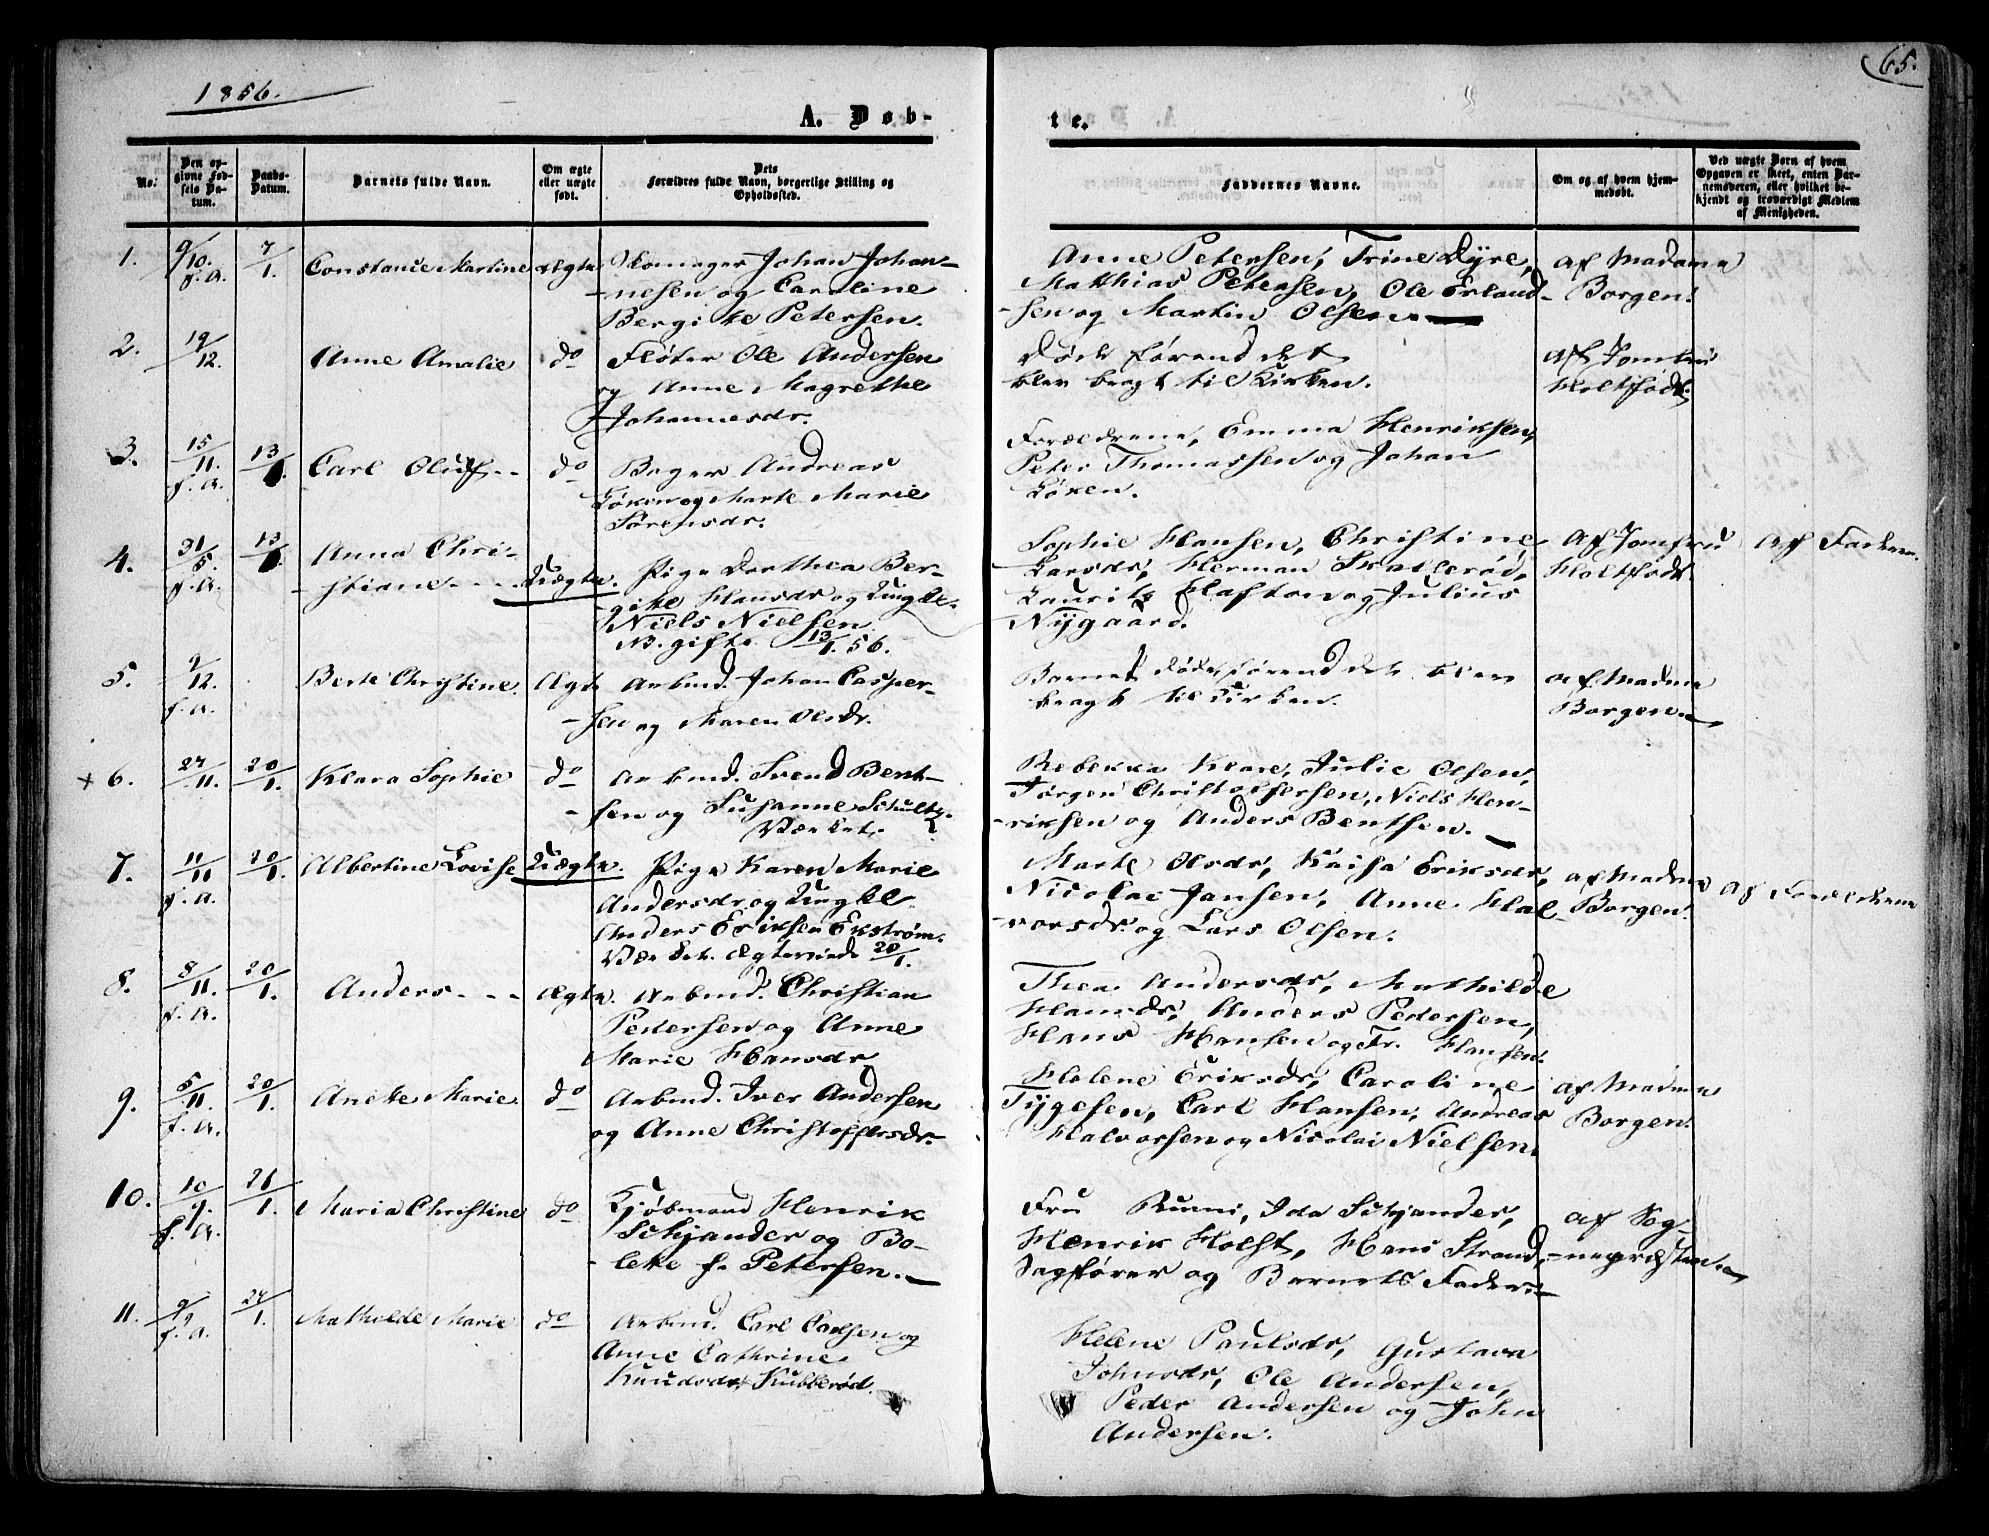 1856.
65.
A. Døb-
te.
No.
Den op-
givne Fød-
sels Da-
tum.
Daabs-
Datum.
Barnets fulde Navn.
Om ægte
eller uægte
født.
Dets
Forældres fulde Navn, borgerlige Stilling og
Opholdssted.
Faddernes Navne.
Om og af hvem hjem-
medøbt.
Ved uægte Børn af hvem
Opgaven er skeet, enten Bar-
nemoderen, eller hvilket be-
kjendt og troværdigt Medlem
af Menigheden.
1.
9/10.
f.A.
7/1.
Constance Martine
ægte
Skomager Johan Johan-
-nesen og Caroline
Bergitte Petersen.
Anne Petersen, Trine Dyre,
Matthias Petersen, Ole Erland-
-sen og Martin Olsen.
af Madame
Borgen.
2.
19/12.
Anne Amalie
do
Fløter Ole Andersen
og Anne Magrethe
Johannesdr.
Døde førend det
blev bragt til Kirken.
af Jomfru
Holtfodt.
3.
15/11.
f.A.
13/1.
Carl Oluf
do
Bager Andreas
Løken og Marte Marie
Sørensdr.
Forældrene, Emma Henriksen,
Peter Thomassen og Johan
Løken.
4.
31/5.
f.A.
13/1.
Anna Chri-
-stiane
Uægte.
Pige Dorthea Ber-
-gitte Hansdr og Ungk.
Niels Nielsen.
NB. gifte 13/1. 56.
Sophie Hansen, Christine
Larsdr, Herman Skallerød,
Laurits Hafton og Julius
Nygaard.
af Jomfru
Holtfodt.
af Faderen.
5.
9/12.
f.A.
Berte Christine.
Ægte
Arbmd. Johan Casper-
-sen og Maren Olsdr.
Barnet døde førend det blev
bragt til Kirken.
af Madme
Borgen.
+ 6.
27/11.
20/1.
Klara Sophie
do
Arbmd. Svend Bent-
-sen og Susanne Schultz.
Værket.
Rebekka Klare, Julie Olsen,
Jørgen Christoffersen, Niels Hen-
-riksen og Anders Bentsen.
7.
11/11
f.A.
20/1.
Albertine Lovise
Uægte.
Pige Karen Marie
Andersdr og Ungkl
Anders Eriksen Ekstrøm.
Værket. Ægteviede 20/1.
Marte Olsdr, Kaisa Eriksdr,
Nicolai Jansen, Anne Hal-
-vorsdr og Lars Olsen.
af Madme
Borgen.
af Forældrene
8.
8/11.
f.A.
20/1.
Anders
Ægte.
Arbmd. Christian
Pedersen og Anne
Marie Hansdr
Thea Andersdr, Mathilde
Hansdr, Anders Pedersen,
Hans Hansen og Fr. Hansen.
9.
5/11.
f.A.
20/1.
Anette Marie.
do
Arbmd. Iver Andersen
og Anne Christoffersdr.
Helene Eriksdr, Caroline
Tygesen, Carl Hansen, Andreas
Halvorsen og Nicolai Nielsen.
af Madme
Borgen.
10.
10/9.
f.A.
26/1.
Maria Christine
do
Kjøbmand Henrik
Schjander og Bo-
-lette f. Petersen.
Fru Ida Schjander,
Henrik Holst, Hans Strand,
Sagfører og Barnets Fader.
af Sog-
-nepræsten
11.
9/9
f.A.
27/1.
Mathilde Marie
do
Arbmd. Carl Carlsen og
Anne Cathrine
Knudsdr, Kubberød.
Helene Paulsdr, Gustava
Johnsdr, Ole Andersen,
Peder Andersen og John
Andersen.